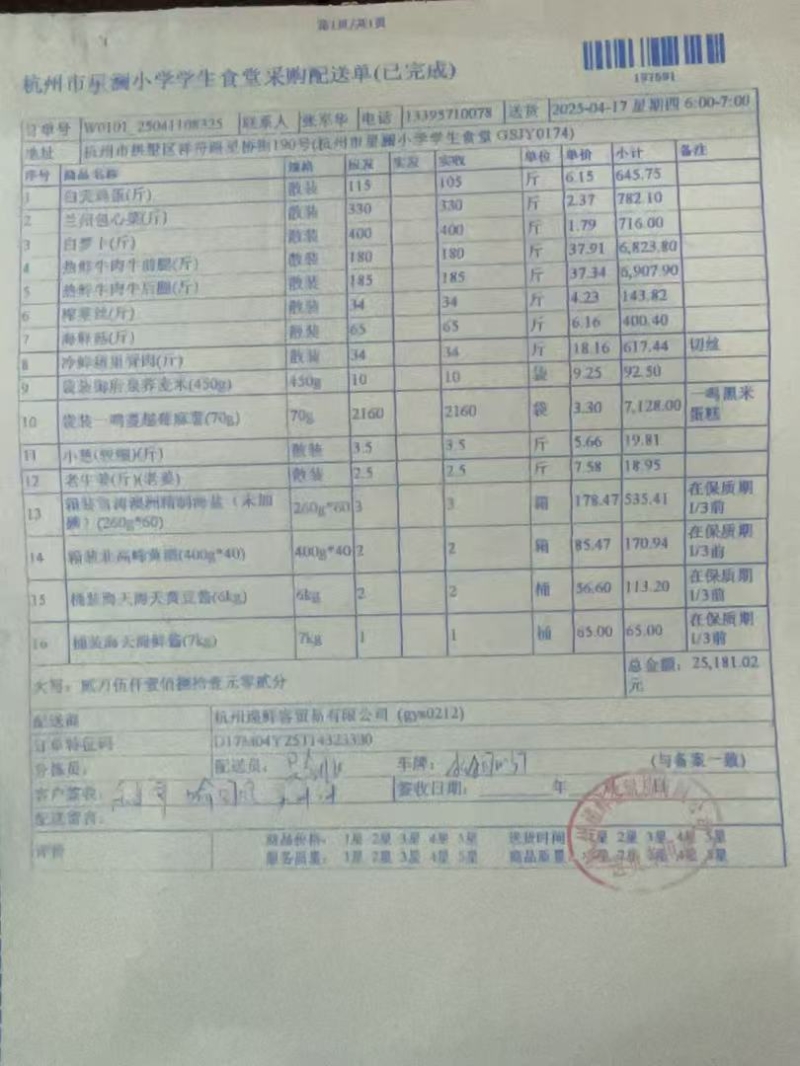 第1页/共1页
197591
杭州市星澜小学学生食堂采购配送单(已完成)
订单号 W0101_25041108325 联系人 张军华 电话 13395710078 送货 2025-04-17 星期四 6:00-7:00
地址 杭州市拱墅区祥符 190号(杭州市星澜小学学生食堂 GSJY0174)
序号 商品名称 规格 应发 实发 实收 单位 单价 小计 备注
1 白壳鸡蛋(斤) 散装 115 105 斤 6.15 645.75
2 兰州包心菜(斤) 散装 330 330 斤 2.37 782.10
3 白萝卜(斤) 散装 400 400 斤 1.79 716.00
4 热鲜牛肉牛前腿(斤) 散装 180 180 斤 37.91 6,823.80
5 热鲜牛肉牛后腿(斤) 散装 185 185 斤 37.34 6,907.90
6 榨菜丝(斤) 散装 34 34 斤 4.23 143.82
7 海鲜菇(斤) 散装 65 65 斤 6.16 400.40
8 冷鲜 肉(斤) 散装 34 34 斤 18.16 617.44 切丝
9 袋装 荞麦米(450g) 450g 10 10 袋 9.25 92.50
10 袋装一鸣蔓越莓麻薯(70g) 70g 2160 2160 袋 3.30 7,128.00 一鸣黑米
蛋糕
11 小葱 (斤) 散装 3.5 3.5 斤 5.66 19.81
12 老生姜(斤)(老姜) 散装 2.5 2.5 斤 7.58 18.95
13 箱装雪涛澳洲精制海盐(未加
碘)(260g*60) 260g*60 3 3 箱 178.47 535.41 在保质期
1/3前
14 箱装北高峰黄酒(400g*40) 400g*40 2 2 箱 85.47 170.94 在保质期
1/3前
15 桶装海天海天黄豆酱(6kg) 6kg 2 2 桶 56.60 113.20 在保质期
1/3前
16 桶装海天海鲜酱(7kg) 7kg 1 1 桶 65.00 65.00 在保质期
1/3前
大写：贰万伍仟壹佰捌拾壹元零贰分 总金额：25,181.02
元
配送商 杭州 鲜客贸易有限公司 (gys0212)
订单特征码 D17M04Y25T14323330
分拣员： 配送员： 车牌： (与备案一致)
客户签收： 签收日期： 年 月 日
配送留言：
评价 商品价格： 1星 2星 3星 4星 5星 送货时间： 1星 2星 3星 4星 5星
服务质量： 1星 2星 3星 4星 5星 商品质量： 1星 2星 3星 4星 5星